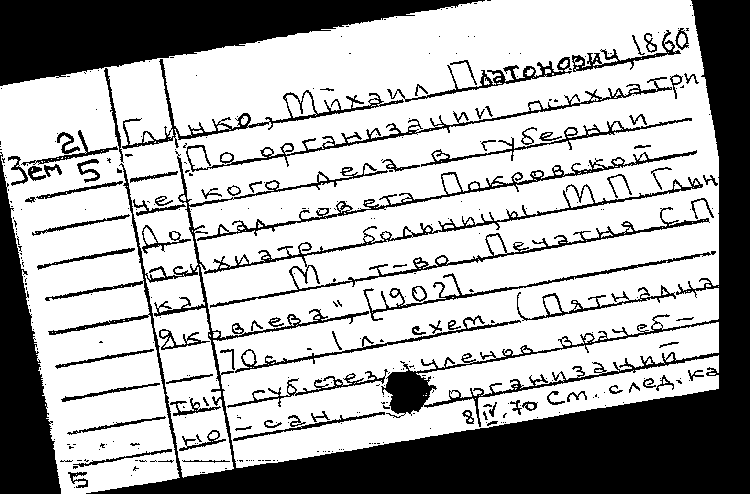 Глинко, Михаил Платонович, 1860
21
Зем 5:
По организации психиатри-
ческого дела в губернии
Доклад совета Покровской
психиатр. больницы. М.П. Глин
ка. М., т-во „Печатня С.П
Яковлева", [1902].
70с.; 1 л. схем. (Пятнадца
тый губ.съезд членов врачеб-
но-сан. организаций
8/IV.70 См. след.ка
5